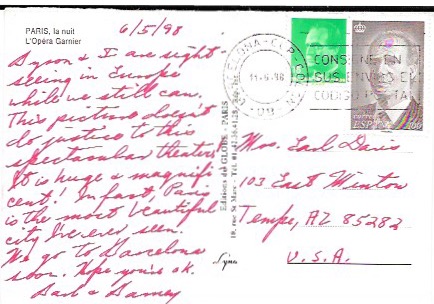 PARIS, la nuit
L'Opéra Garnier
6/5/98
Byron & I are sight
seeing in Europe
while we still can.
This picture doesn't
do justice to this
spectacular theatre.
It is huge & magnifi
cent! In fact, Paris
is the most beautiful
city I've ever seen.
We go to Barcelona
soon. Hope you're ok.
Editions du GLOBE, PARIS
CONSIGNE EN
SUS ENVIOS EL
CODIGO POSTAL
Mrs. Earl Davis
103 East Winton
Tempe, AZ 85282
U.S.A.